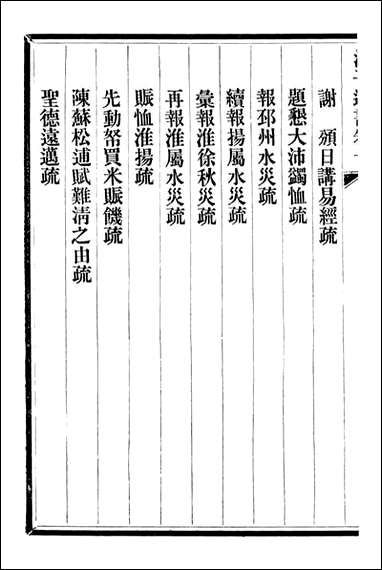 謝 頒日講易經疏
題懇大沛蠲恤疏
報邳州水災疏
續報揚屬水災疏
彙報淮徐秋災疏
再報淮屬水災疏
賑恤淮揚疏
先動帑買米賑饑疏
陳蘇松逋賦難清之由疏
聖德遠邁疏